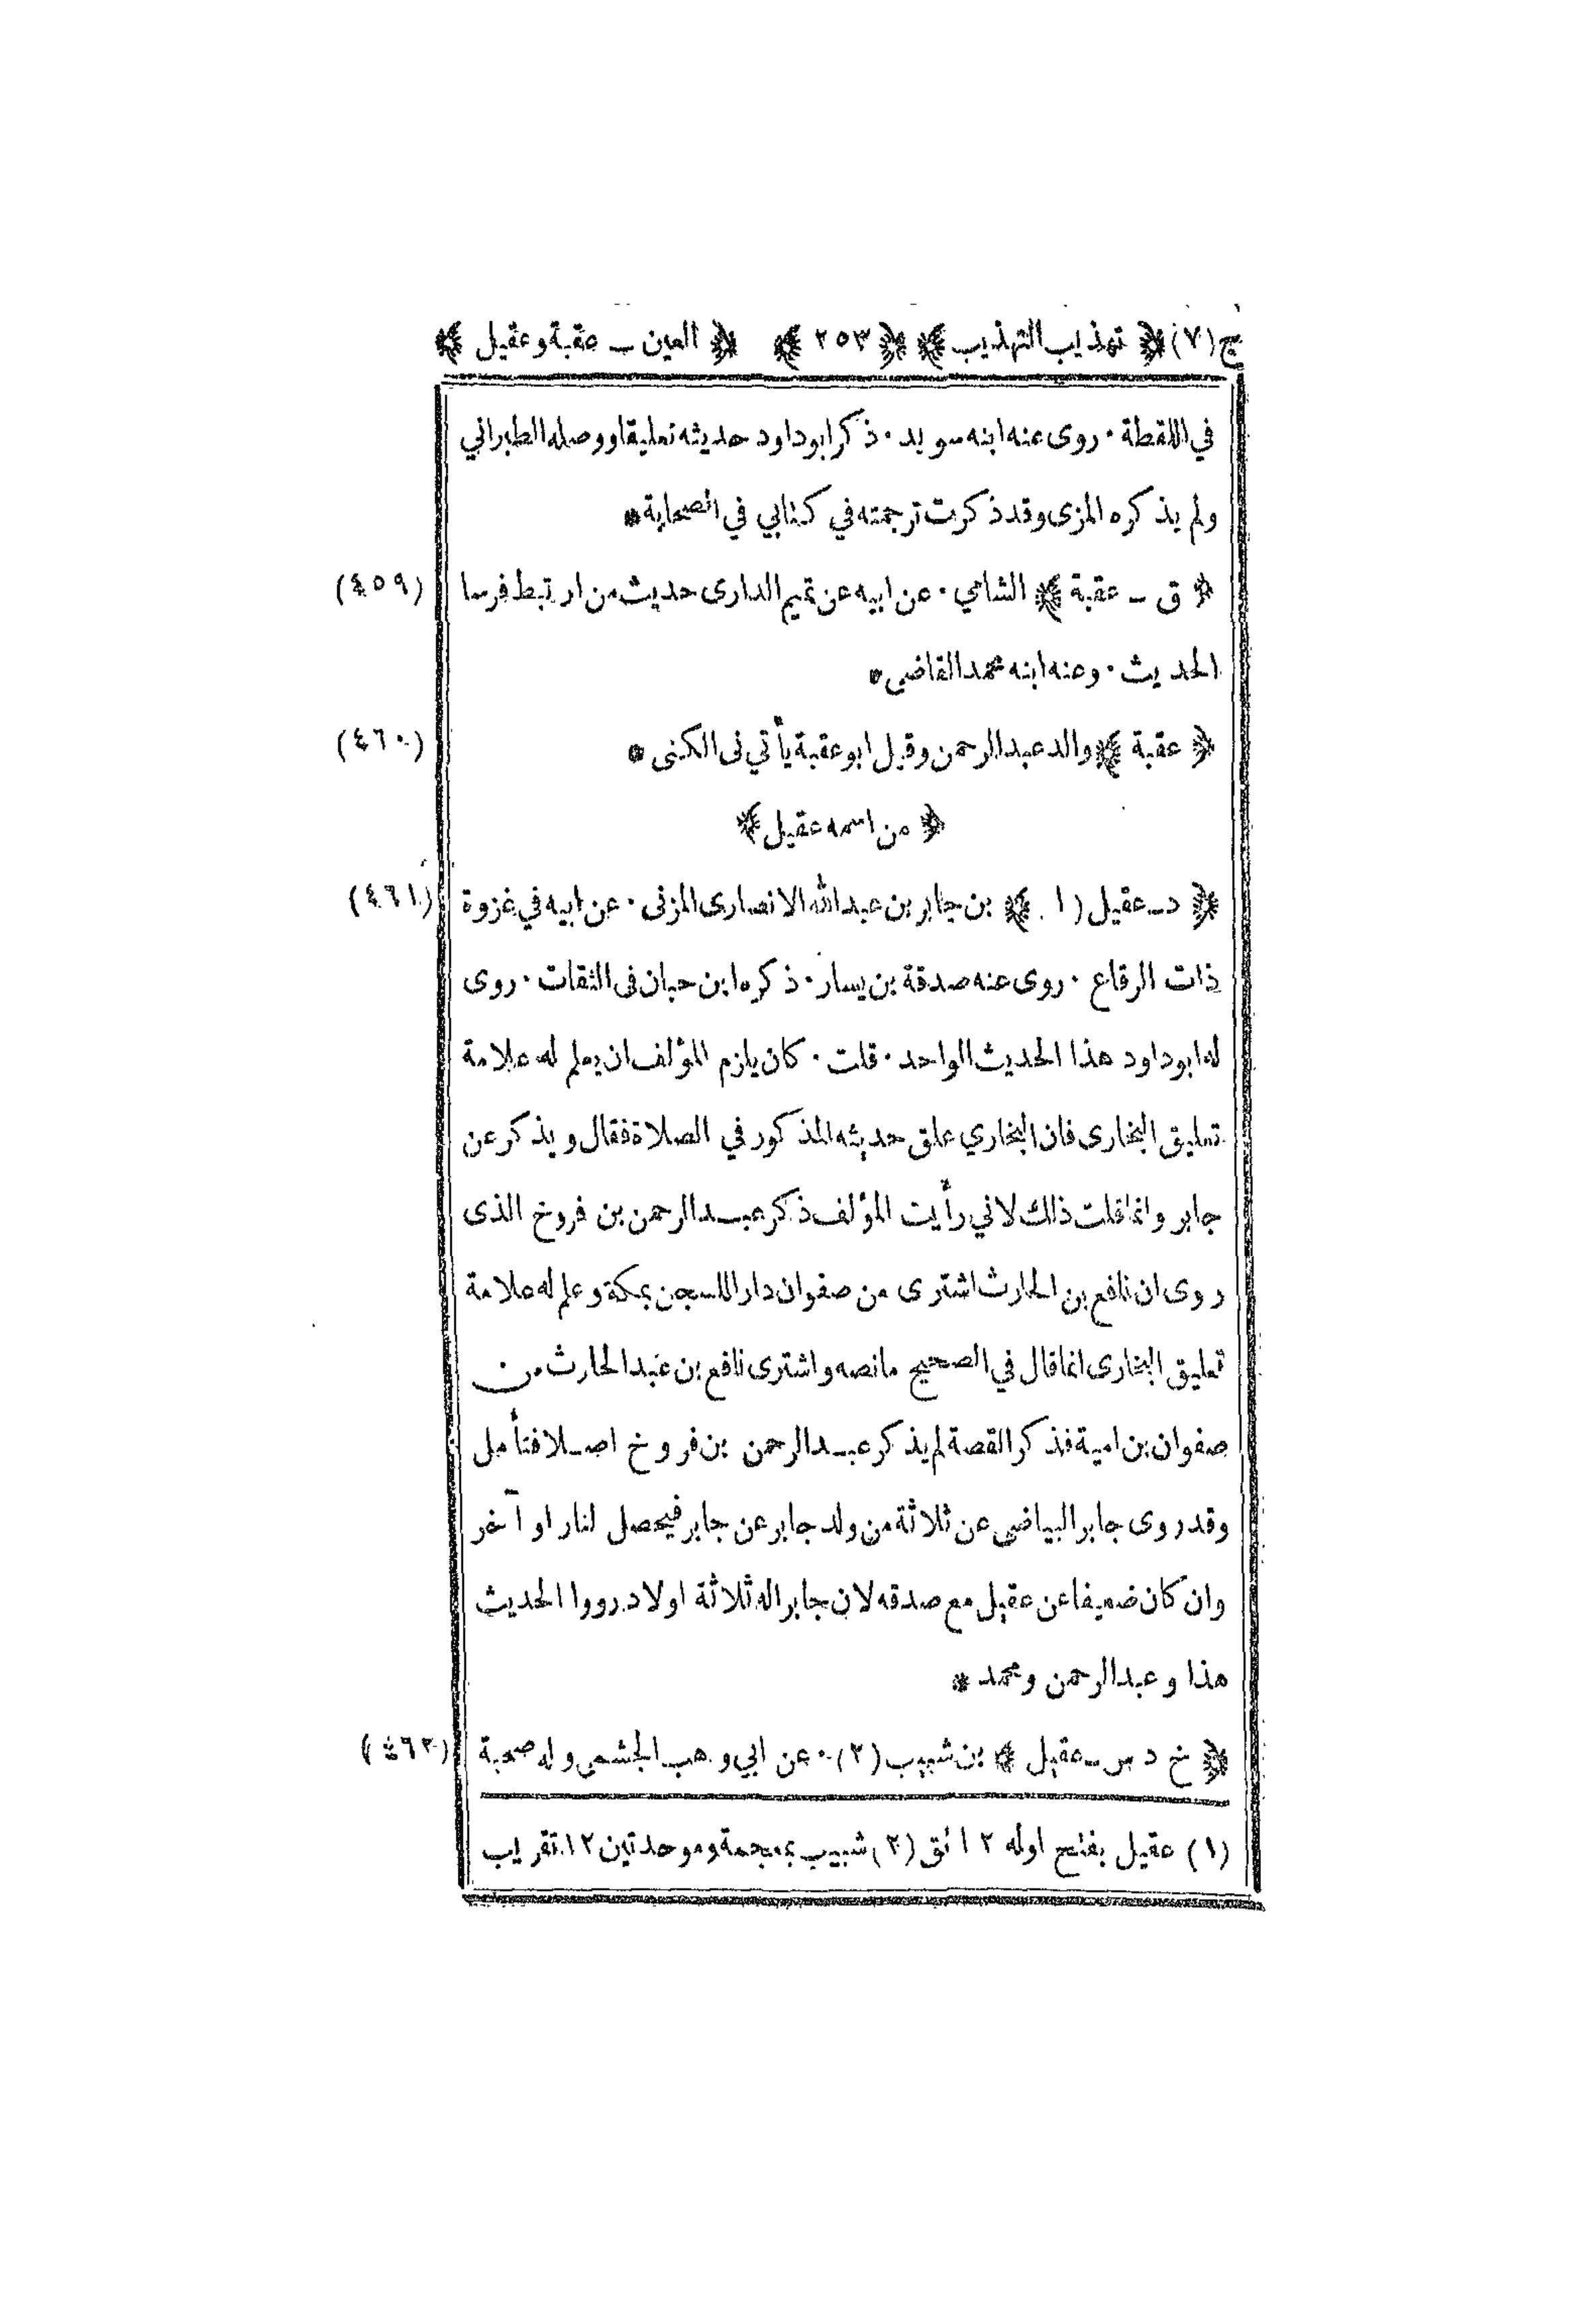 ج(٧) ﴿ تهذيب التهذيب ﴾ ﴿ ٢٥٣ ﴾ ﴿ العين – عقبة وعقيل ﴾
في اللقطة ٠ روى عنه ابنه سويد ٠ ذكر ابو داود حديثه تعليقا ووصله الطبراني
ولم يذكره المزى وقد ذكرت ترجمته في كتابي في الصحابة *
﴿ ق – عقبة ﴾ الشامي ٠ عن ابيه عن تميم الدارى حديث من ارتبط فرسا (٤٥٩)
الحديث ٠ وعنه ابنه محمد القاضي *
﴿ عقبة ﴾ والد عبد الرحمن وقيل ابو عقبة يأتي في الكنى * (٤٦٠)
﴿ من اسمه عقيل ﴾
﴿ د – عقيل (١ ﴾ بن جابر بن عبد الله الانصارى المزنى ٠ عن ابيه في غزوة (٤٦١)
ذات الرقاع ٠ روى عنه صدقة بن يسار ٠ ذكره ابن حبان في الثقات ٠ روى
له ابو داود هذا الحديث الواحد ٠ قلت ٠ كان يلزم المؤلف ان يعلم له علامة
تعليق البخارى فان البخاري علق حديثه المذكور في الصلاة فقال ويذكر عن
جابر وانما قلت ذلك لاني رأيت المؤلف ذكر عبد الرحمن بن فروخ الذى
روى ان نافع بن الحارث اشترى من صفوان دارا للسجن بمكة وعلم له علامة
تعليق البخارى انما قال في الصحيح مانصه واشترى نافع بن عبد الحارث من
صفوان بن امية فذكر القصة لم يذكر عبد الرحمن بن فروخ اصلا فتأمل
وقد روى جابر البياضي عن ثلاثة من ولد جابر عن جابر فيحصل لنا راو آخر
وان كان ضعيفا عن عقيل مع صدقه لان جابرا له ثلاثة اولاد رووا الحديث
هذا وعبد الرحمن ومحمد *
﴿ خ د س – عقيل ﴾ بن شبيب (٢) ٠ عن ابي وهب الجشمي وله صحبة (٤٦٢)
(١) عقيل بفتح اوله ١٢ تق (٢) شبيب بمعجمة وموحدتين ١٢ تقريب